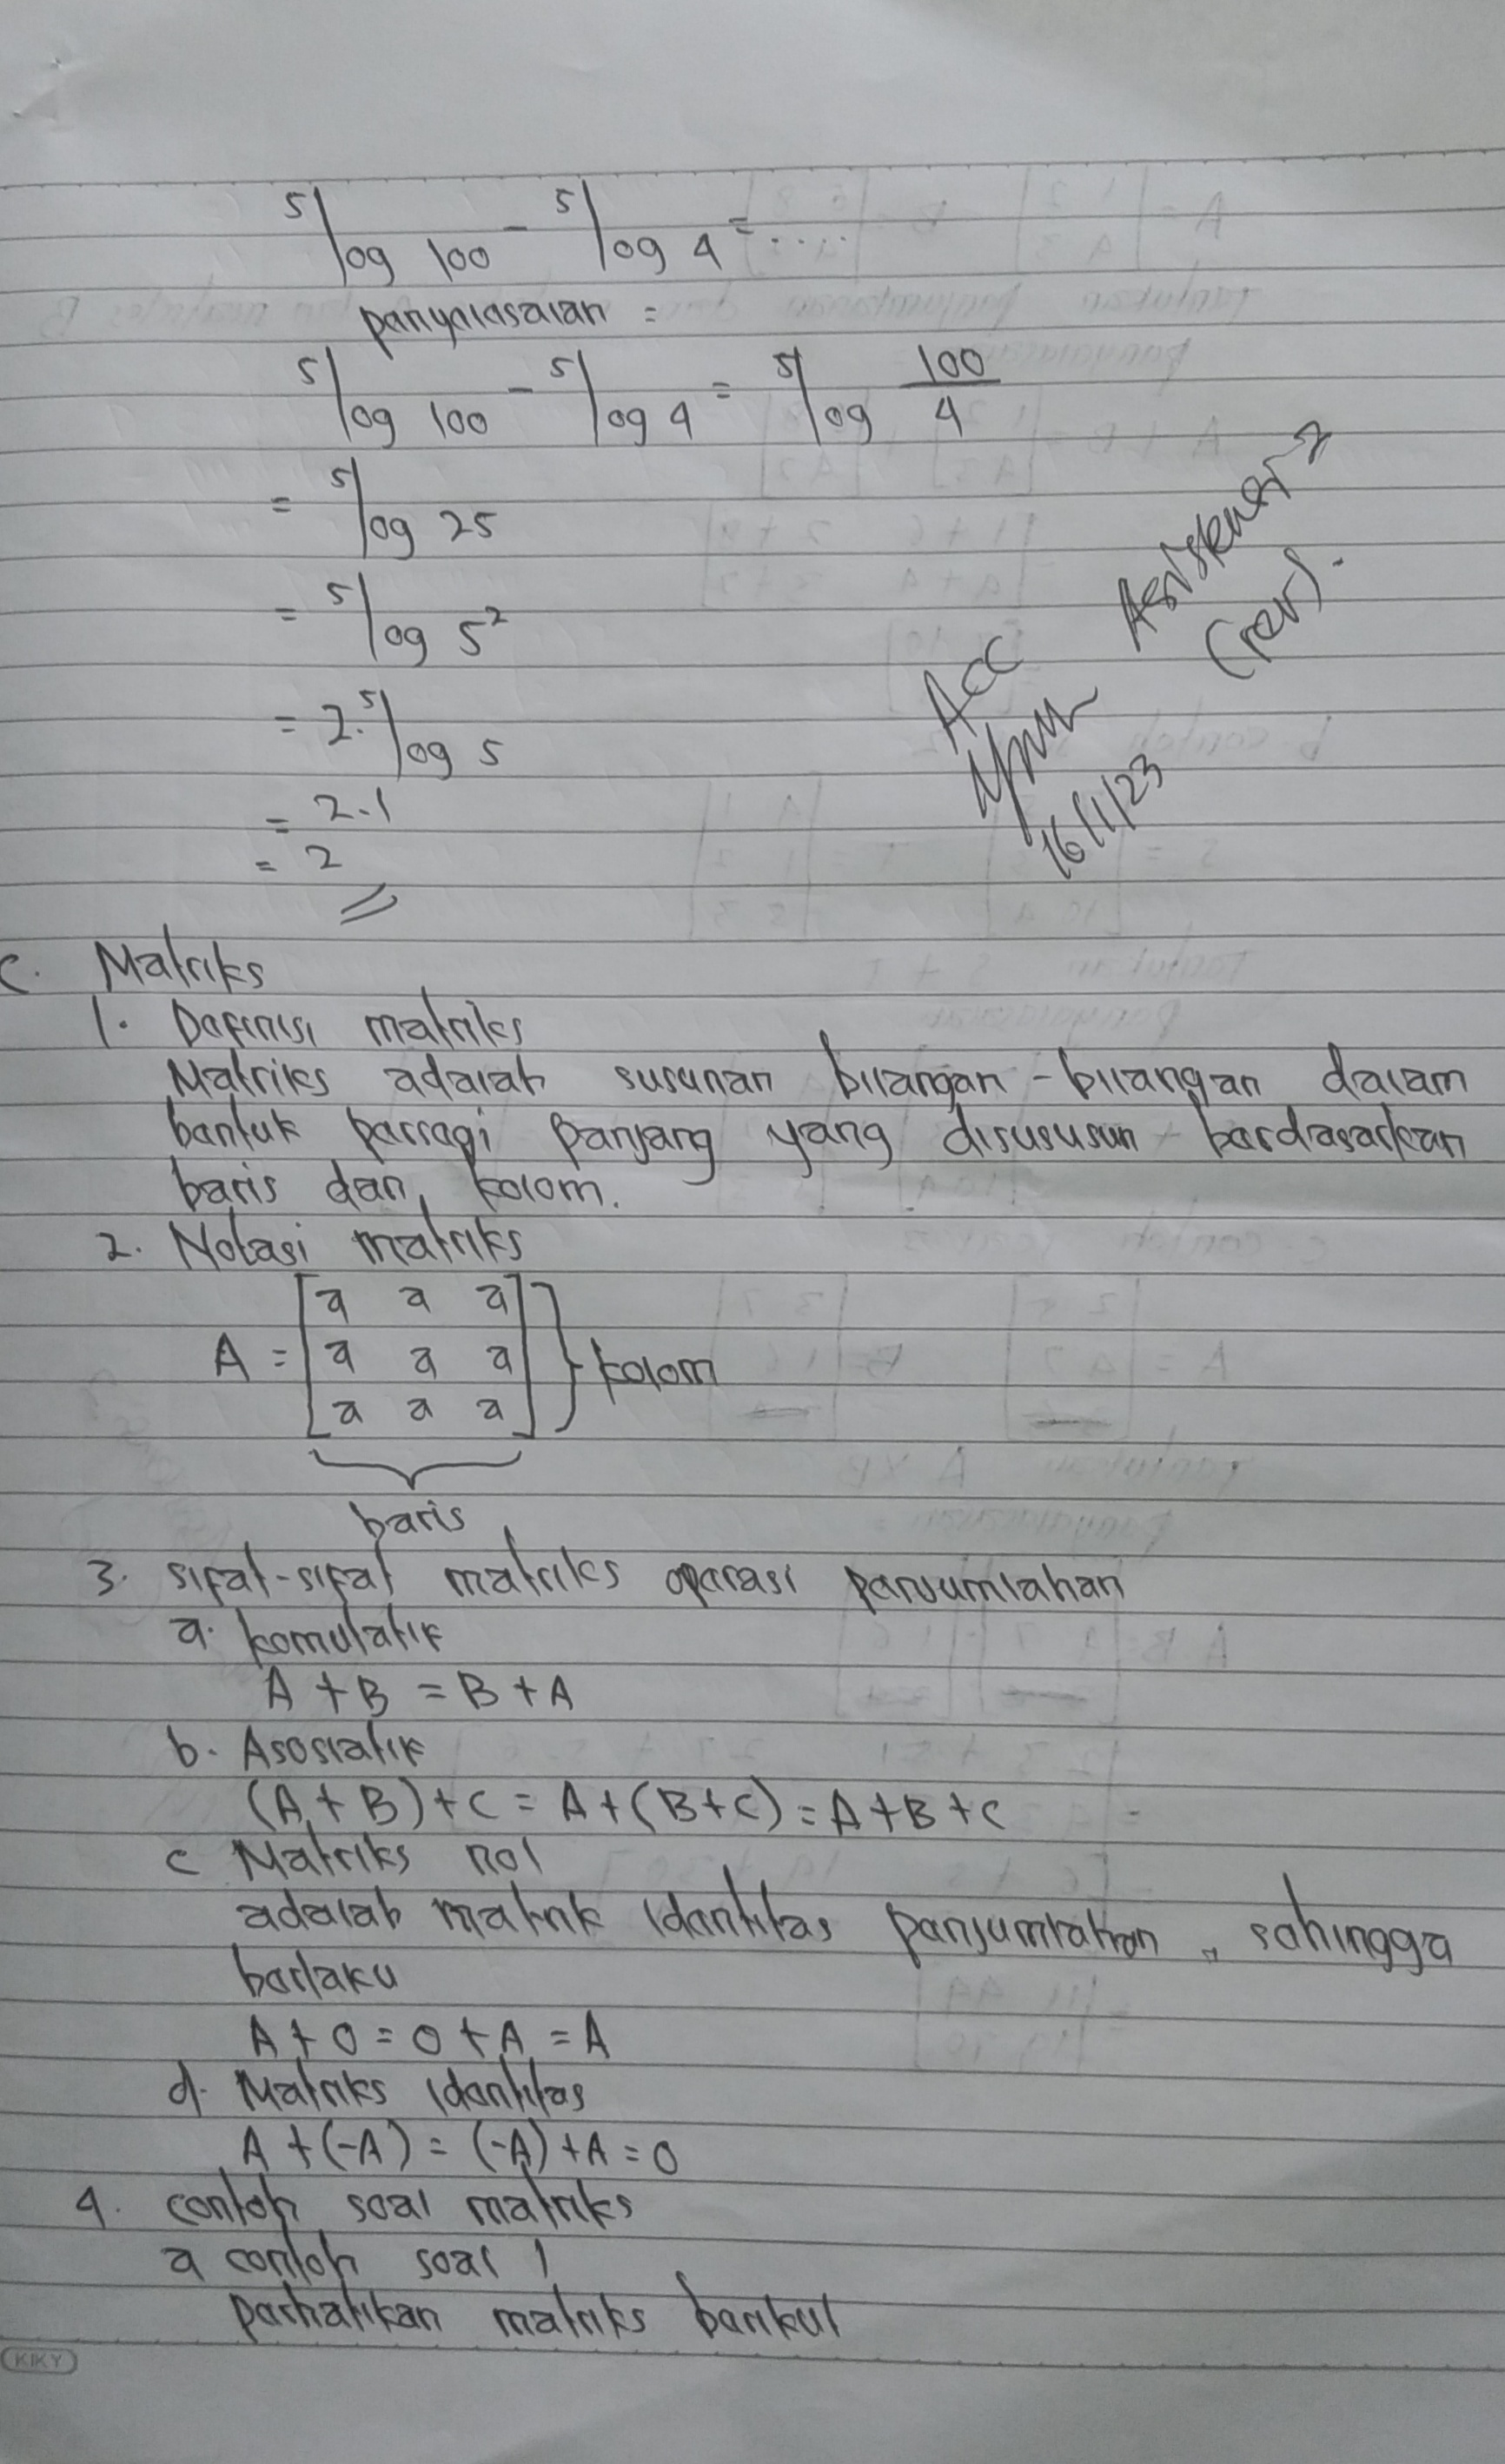 ⁵log 100 - ⁵log 4 = ....
penyelesaian =
⁵log 100 - ⁵log 4 = ⁵log 100/4
= ⁵log 25
= ⁵log 5²
= 2.⁵log 5
= 2.1
= 2
Acc
16/1/23
(rev).
C. Matriks
1. Definisi matriks
Matriks adalah susunan bilangan-bilangan dalam
bentuk persegi panjang yang disususun berdasarkan
baris dan kolom.
2. Notasi matriks
A = [a a a
a a a
a a a] } kolom
baris
3. sifat-sifat matriks operasi penjumlahan
a. komutatif
A + B = B + A
b. Asosiatif
(A + B) + C = A + (B + C) = A + B + C
c Matriks nol
adalah matrik identitas penjumlahan, sehingga
berlaku
A + 0 = 0 + A = A
d. Matriks Identitas
A + (-A) = (-A) + A = 0
4. contoh soal matriks
a contoh soal 1
perhatikan matriks berikut
KIKY